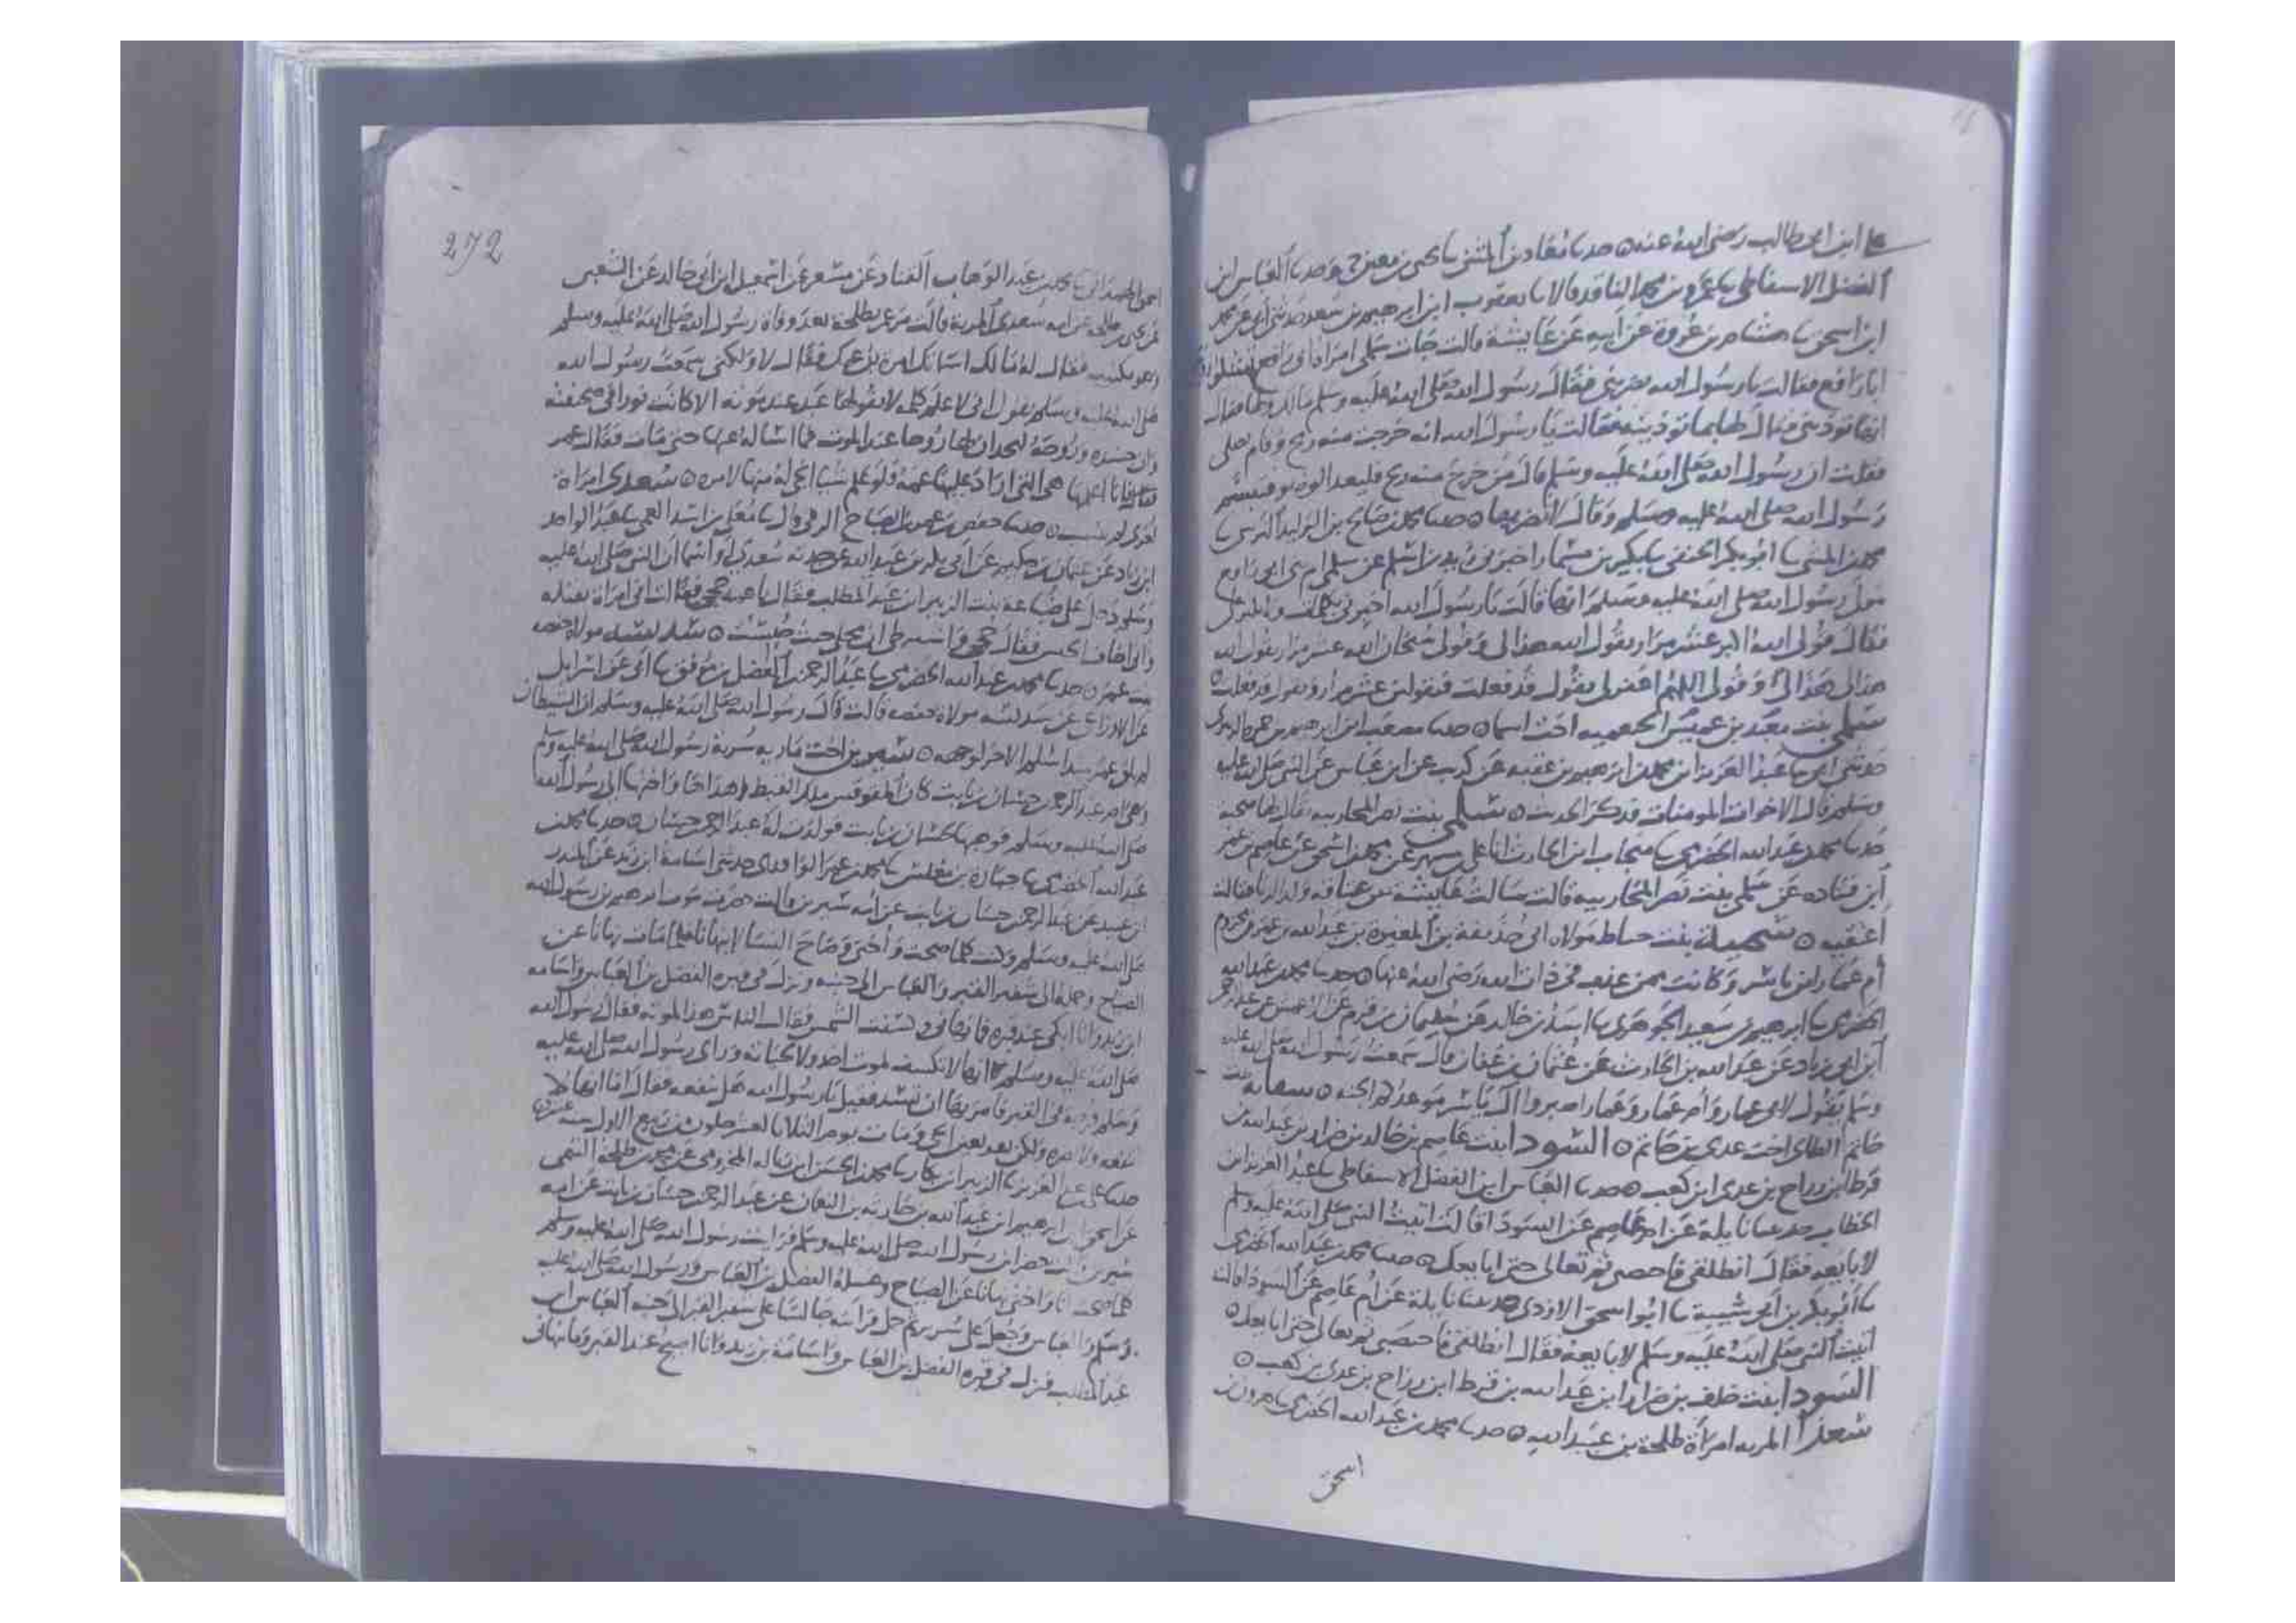 علي ابن ابي طالب رضي الله عنه ٥ حدثنا معاذ بن المثنى ثنا يحيى بن معين ح وحدثنا العباس ابن
الفضل الاسفاطي ثنا عمرو بن محمد الناقد قالا ثنا يعقوب ابن ابرهيم بن سعد حدثني ابي عن محمد
ابن اسحق ثنا هشام بن عروة عن ابيه عن عايشة قالت جات سلمى امراة ابي رافع
ابا رافع فقالت يا رسول الله ضربني فقال رسول الله صلى الله عليه وسلم مالك ولها فقال
انها توذيني فقال لها بما توذينه فقالت يا رسول الله انه خرجت منه ريح وقام يصلي
فقلت ان رسول الله صلى الله عليه وسلم قال من خرج منه ريح فليعد الوضو فتبسم
رسول الله صلى الله عليه وسلم وقال لا تضربها ٥ حدثنا محمد بن صالح بن الوليد النرسي ثنا
محمد بن المثنى ثنا ابو بكر الحنفي ثنا بكير بن مسمار اخبرني زيد بن اسلم عن سلمى ام بني ابي رافع
مولى رسول الله صلى الله عليه وسلم انها قالت يا رسول الله اخبرني بكلمات ولا تكثر علي
فقال قولي الله اكبر عشر مرار يقول الله هذا لي وقولي سبحان الله عشر مرار يقول الله
هذا لي وقولي اللهم اغفر لي يقول قد فعلت فتقولين عشر مرار ويقول قد فعلت ٥
سلمى بنت معبد بن عميس الخثعميه اخت اسما ٥ حدثنا مصعب ابن ابرهيم بن حمزة الزبيري
حدثني ابي ثنا عبد العزيز ابن محمد بن ابرهيم بن عقبه عن كريب عن ابن عباس عن النبي صلى الله عليه
وسلم قال الاخوات المومنات فذكر الحديث ٥ سلمى بنت نصر المحاربيه يقال لها صحبة
حدثنا محمد بن عبد الله الحضرمي ثنا منجاب ابن الحارث انا علي بن مسهر عن محمد بن اسحق عن عاصم بن عمر
ابن قتاده عن سلمى بنت نصر المحاربيه قالت سالت عايشة عن عتاقه ولد الزنا فقالت
اعتقيه ٥ سمية بنت خباط مولاة ابي حذيفة بن المغيرة بن عبد الله بن عمر بن مخزوم
ام عمار ابن ياسر وكانت ممن عذب في ذات الله رضي الله عنها ٥ حدثنا محمد بن عبد الله
الحضرمي ثنا ابرهيم بن سعيد الجوهري ثنا اسد بن خالد عن سليمان بن قرم عن الاعمش عن عبد الرحمن
ابن ابي زياد عن عبد الله بن الحارث عن عثمان بن عفان قال سمعت رسول الله صلى الله عليه
وسلم يقول لابي عمار وام عمار وعمار اصبروا ال ياسر موعدكم الجنه ٥ سفانه بنت
حاتم الطاي اخت عدي بن حاتم ٥ السودا بنت عاصم بن خالد بن ضرار بن عبد الله بن
قرط ابن رزاح بن عدي ابن كعب ٥ حدثنا العباس ابن الفضل الاسفاطي ثنا عبد العزيز ابن
الخطاب حدثتنا نايلة عن ام عاصم عن السودا قالت اتيت النبي صلى الله عليه وسلم
لابايعه فقال انطلقي فاختضبي ثم تعالي حتى ابايعك ٥ حدثنا محمد بن عبد الله الحضرمي
ثنا ابو بكر بن ابي شيبة ثنا ابو اسحق الازدي حدثتنا نايلة عن ام عاصم عن السودا قالت
اتيت النبي صلى الله عليه وسلم لابايعه فقال انطلقي فاختضبي ثم تعالي حتى ابايعك ٥
السودا بنت خلف بن ضرار ابن عبد الله بن قرط ابن رزاح بن عدي بن كعب ٥
سعدا المريه امراة طلحة بن عبيد الله ٥ حدثنا محمد بن عبد الله الحضرمي ثنا هرون بن
اسحق
272
اسحق الهمداني ثنا محمد بن عبد الوهاب القناد عن مسعر عن اسمعيل ابن ابي خالد عن الشعبي
عن يحيى بن طلحه عن امه سعدى المرية قالت مر عمر بطلحة بعد وفاة رسول الله صلى الله عليه وسلم
وهو مكتيب فقال له مالك اساتك امرة ابن عمك فقال لا ولكني سمعت رسول الله
صلى الله عليه وسلم يقول اني لاعلم كلمه لا يقولها عبد عند موته الا كانت نورا في صحيفته
وان جسده وروحه ليجدان لها روحا عند الموت فما اساله عنها حتى مات فقال عمر
فانا اعلمها هي التي اراد عليها عمه ولو علم شيا انجى له منها لامره ٥ سعدى امراة
اخرى لم تنسب ٥ حدثنا حفص بن عمر بن الصباح الرقي قال ثنا معلى بن اسد العمي ثنا عبد الواحد
ابن زياد عن عثمان بن حكيم عن ابي بكر بن عبد الله عن جدته سعدى او اسما ان النبي صلى الله عليه
وسلم دخل على ضباعة بنت الزبير ابن عبد المطلب فقال يا عمه حجي فقالت اني امراة ثقيله
واني اخاف الحبس فقال حجي واشترطي ان محلي حيث حبست ٥ سديسه مولاة حفصه
بنت عمر ٥ حدثنا محمد بن عبد الله الحضرمي ثنا عبد الرحمن بن الفضل بن موفق ثنا ابي عن اسرايل
عن الاوزاعي عن سديسه مولاة حفصه قالت قال رسول الله صلى الله عليه وسلم ان الشيطان
لم يلق عمر منذ اسلم الا خر لوجهه ٥ سيرين اخت ماريه سرية رسول الله صلى الله عليه وسلم
وهي ام عبد الرحمن بن حسان بن ثابت كان المقوقس ملك القبط اهداها واختها الى رسول الله
صلى الله عليه وسلم فوهبها لحسان بن ثابت فولدت له عبد الرحمن بن حسان ٥ حدثنا محمد بن
عبد الله الحضرمي ثنا جباره بن مغلس ثنا محمد بن عمر الواقدي حدثني اسامة ابن زيد عن المنذر
ابن عبيد عن عبد الرحمن بن حسان بن ثابت عن امه سيرين قالت حضرت موت ابرهيم بن رسول الله
صلى الله عليه وسلم وكنت كلما صحت واختي وصاح النسا لا ينهانا فلما مات نهانا عن
الصياح وحمله الى شفير القبر والعباس الى جنبه ونزل في قبره الفضل بن العباس واسامه
ابن زيد وانا ابكي عند قبره فما نهاني وكسفت الشمس فقال الناس هذا لموته فقال رسول الله
صلى الله عليه وسلم انها لا تنكسف لموت احد ولا لحياته وراى رسول الله صلى الله عليه
وسلم فرجه في القبر فامر بها ان تسد فقيل يا رسول الله هل تنفعه فقال اما انها لا
تنفعه ولا تضره ولكن تقر بعين الحي ومات يوم الثلاثا لعشر خلون من ربيع الاول سنة عشر ٥
حدثنا علي بن عبد العزيز ثنا الزبير ابن بكار ثنا محمد بن الحسن ابن زباله المخزومي عن محمد بن طلحة التيمي
عن اسحق ابن ابرهيم ابن عبد الله بن حارثه بن النعمان عن عبد الرحمن بن حسان بن ثابت عن امه
سيرين قالت حضر ابن رسول الله صلى الله عليه وسلم فرايت رسول الله صلى الله عليه وسلم
كلما صحت انا واختي نهانا عن الصياح وغسله الفضل بن العباس ورسول الله صلى الله عليه
وسلم والعباس وجعل على سرير ثم حمل فرايته جالسا على شفير القبر الى جنبه العباس ابن
عبد المطلب فنزل في قبره الفضل بن العباس واسامة بن زيد وانا اصيح عند القبر وما نهاني